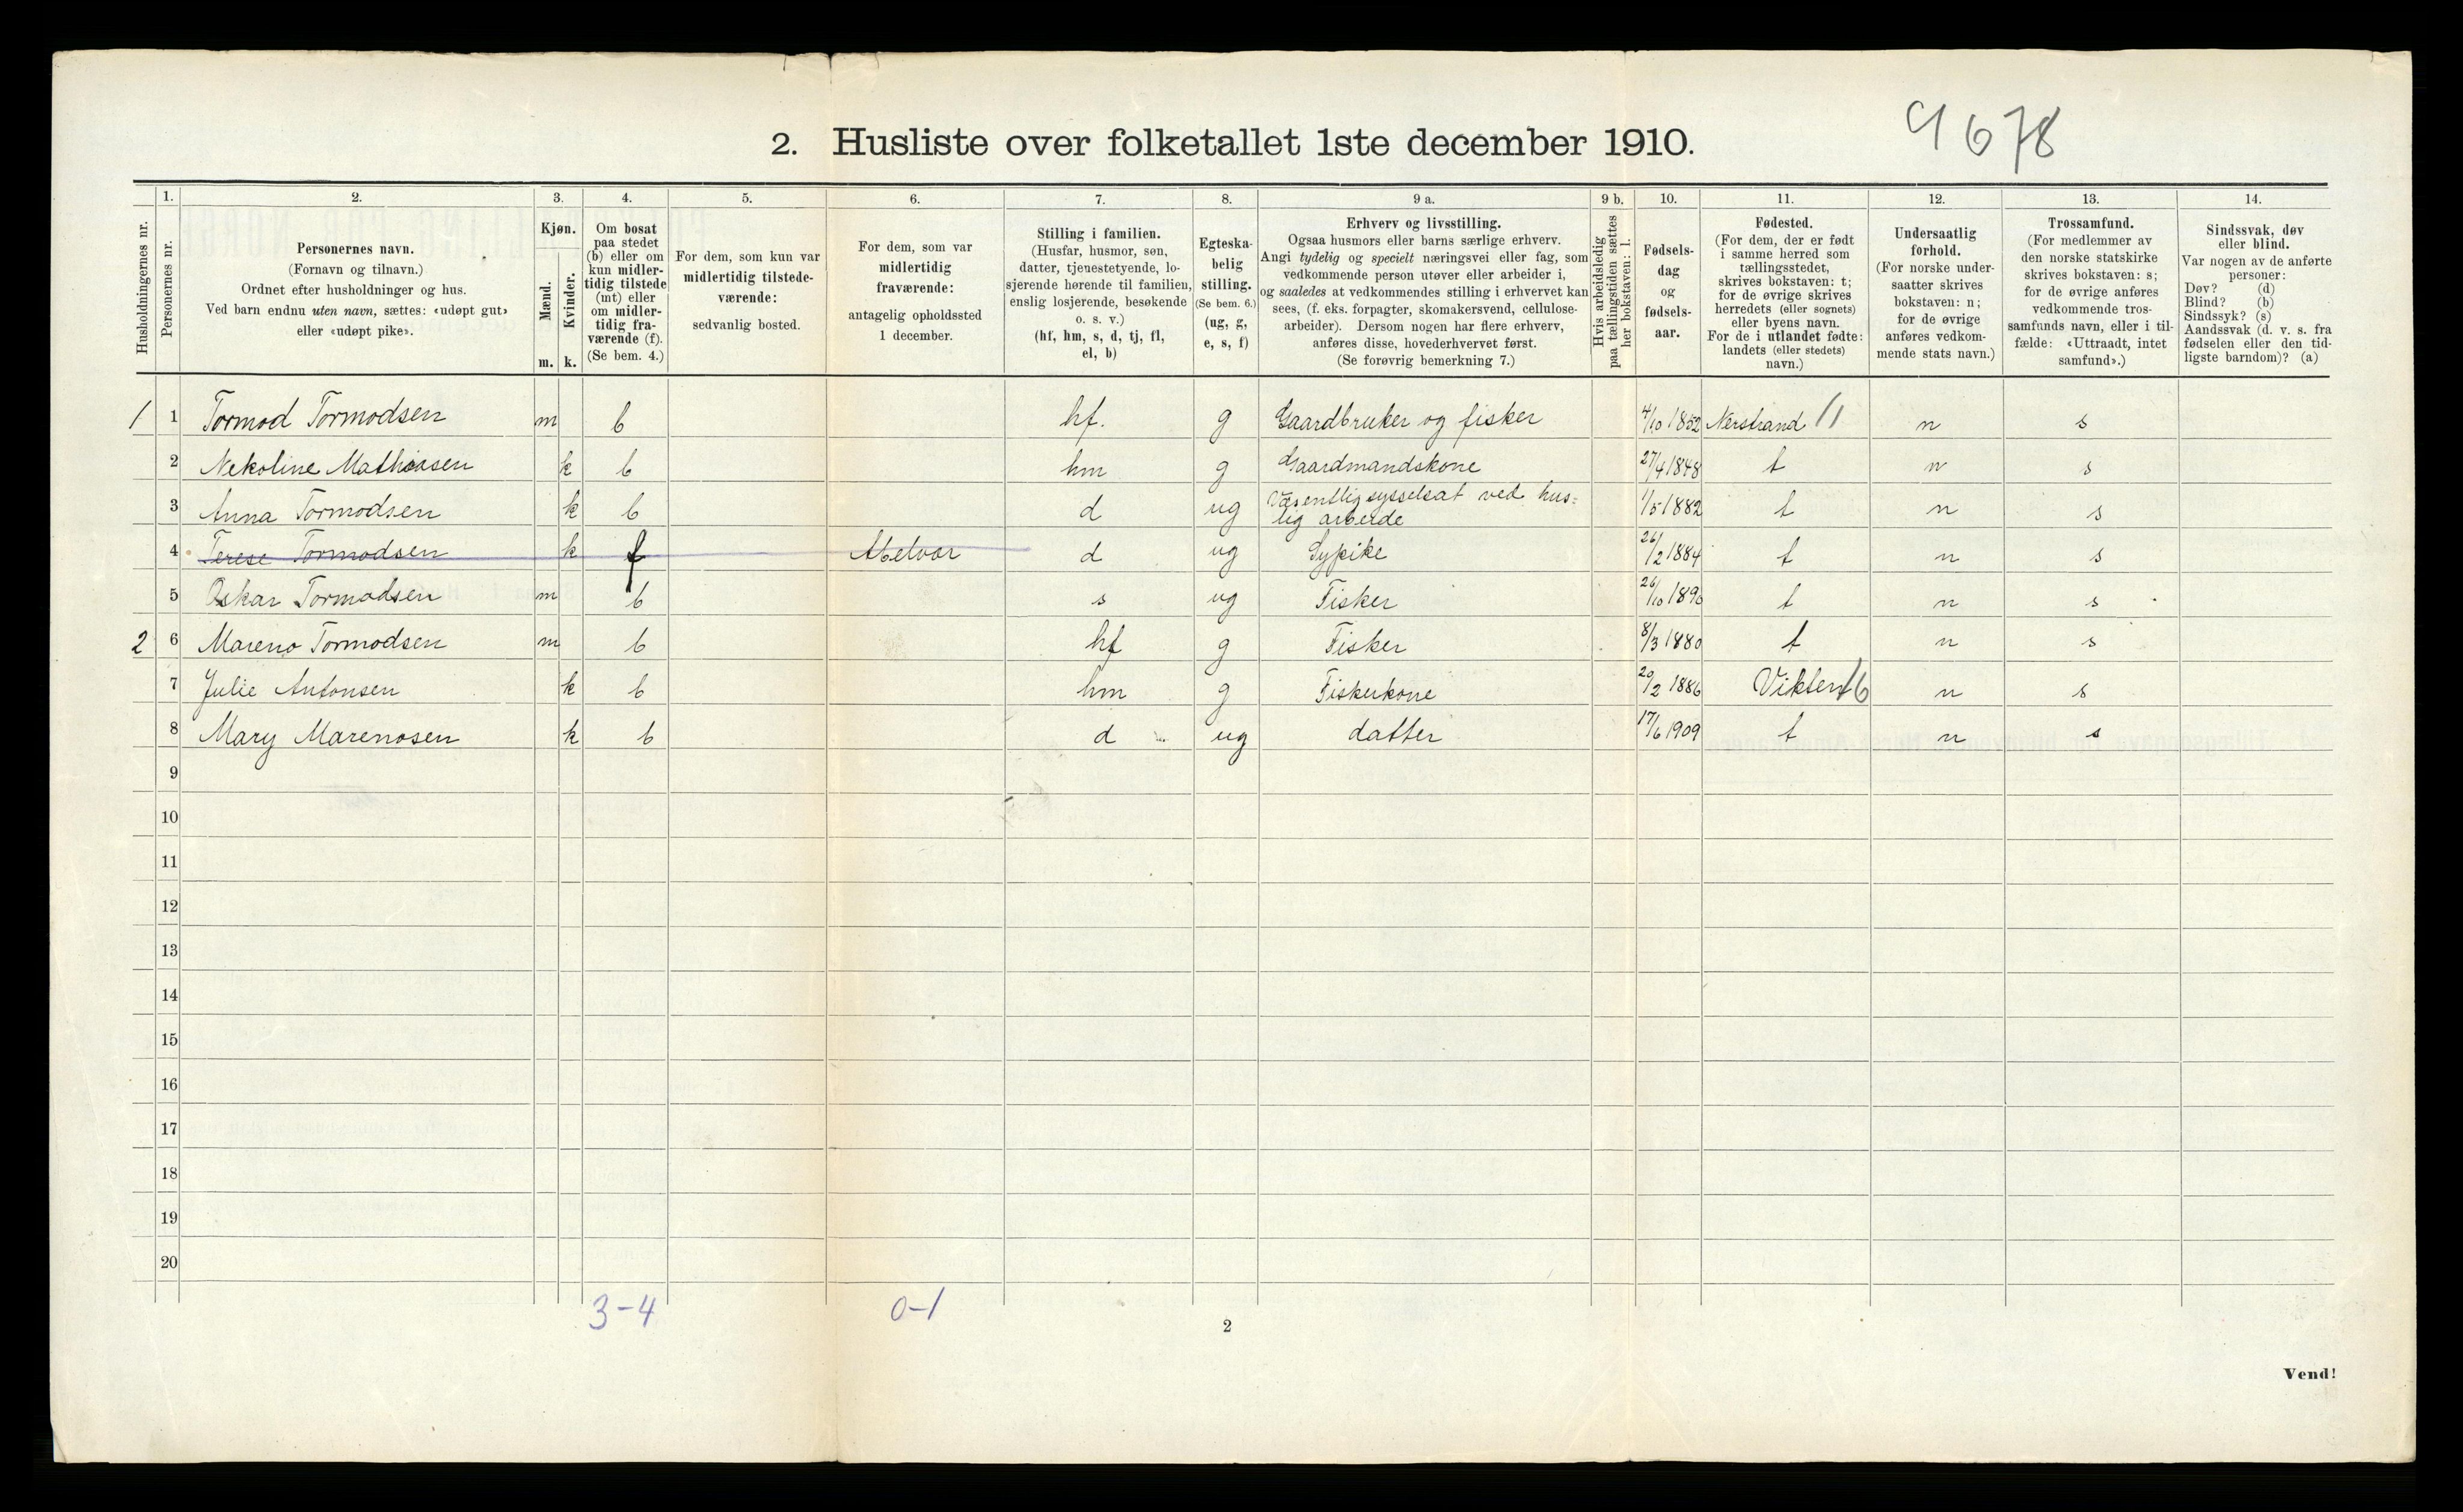 9678
2. Husliste over folketallet 1ste december 1910.
Husholdningernes nr.
1.
Personernes nr.
2.
Personernes navn.
(Fornavn og tilnavn.)
Ordnet efter husholdninger og hus.
Ved barn endnu uten navn, sættes: «udøpt gut»
eller «udøpt pike».
3.
Kjøn.
Mænd.
Kvinder.
m. k.
4.
Om bosat
paa stedet
(b) eller om
kun midler-
tidig tilstede
(mt) eller
om midler-
tidig fra-
værende (f).
(Se bem. 4.)
5.
For dem, som kun var
midlertidig tilstede-
værende:
sedvanlig bosted.
6.
For dem, som var
midlertidig
fraværende:
antagelig opholdssted
1 december.
7.
Stilling i familien.
(Husfar, husmor, søn,
datter, tjenestetyende, lo-
sjerende hørende til familien,
enslig losjerende, besøkende
o. s. v.)
(hf, hm, s, d, tj, fl,
el, b)
8.
Egteska-
belig
stilling.
(Se bem. 6.)
(ug, g,
e, s, f)
9 a.
Erhverv og livsstilling.
Ogsaa husmors eller barns særlige erhverv.
Angi tydelig og specielt næringsvei eller fag, som
vedkommende person utøver eller arbeider i,
og saaledes at vedkommendes stilling i erhvervet kan
sees, (f. eks. forpagter, skomakersvend, cellulose-
arbeider). Dersom nogen har flere erhverv,
anføres disse, hovederhvervet først.
(Se forøvrig bemerkning 7.)
9 b.
Hvis arbeidsledig
paa tællingstiden sættes
her bokstaven: l.
10.
Fødsels-
dag
og
fødsels-
aar.
11.
Fødested.
(For dem, der er født
i samme herred som
tællingsstedet,
skrives bokstaven: t;
for de øvrige skrives
herredets (eller sognets)
eller byens navn.
For de i utlandet fødte:
landets (eller stedets)
navn.)
12.
Undersaatlig
forhold.
(For norske under-
saatter skrives
bokstaven: n;
for de øvrige
anføres vedkom-
mende stats navn.)
13.
Trossamfund.
(For medlemmer av
den norske statskirke
skrives bokstaven: s;
for de øvrige anføres
vedkommende tros-
samfunds navn, eller i til-
fælde: «Uttraadt, intet
samfund».)
14.
Sindssvak, døv
eller blind.
Var nogen av de anførte
personer:
Døv? (d)
Blind? (b)
Sindssyk? (s)
Aandssvak (d. v. s. fra
fødselen eller den tid-
ligste barndom)? (a)
1 1 Tormod Tormodsen m b hf. g Gaardbruker og fisker 4/10 1852 Nerstrand 11 n s
2 Nekoline Mathiasen k b hm g Gaardmandskone 27/4 1848 t n s
3 Anna Tormodsen k b d ug Væsentlig sysselsat ved hus=
lig arbeide 1/5 1882 t n s
4 Terese Tormodsen k f d ug Sypike 26/2 1884 t n s
5 Oskar Tormodsen m b s ug Fisker 26/10 1890 t n s
2 6 Mareno Tormodsen m b hf g Fisker 8/3 1880 t n s
7 Julie Antonsen k b hm g Fiskerkone 20/2 1886 Vikten 16 n s
8 Mary Marenosen k b d ug datter 17/6 1909 t n s
9
10
11
12
13
14
15
16
17
18
19
20
3-4 0-1
2
Vend!